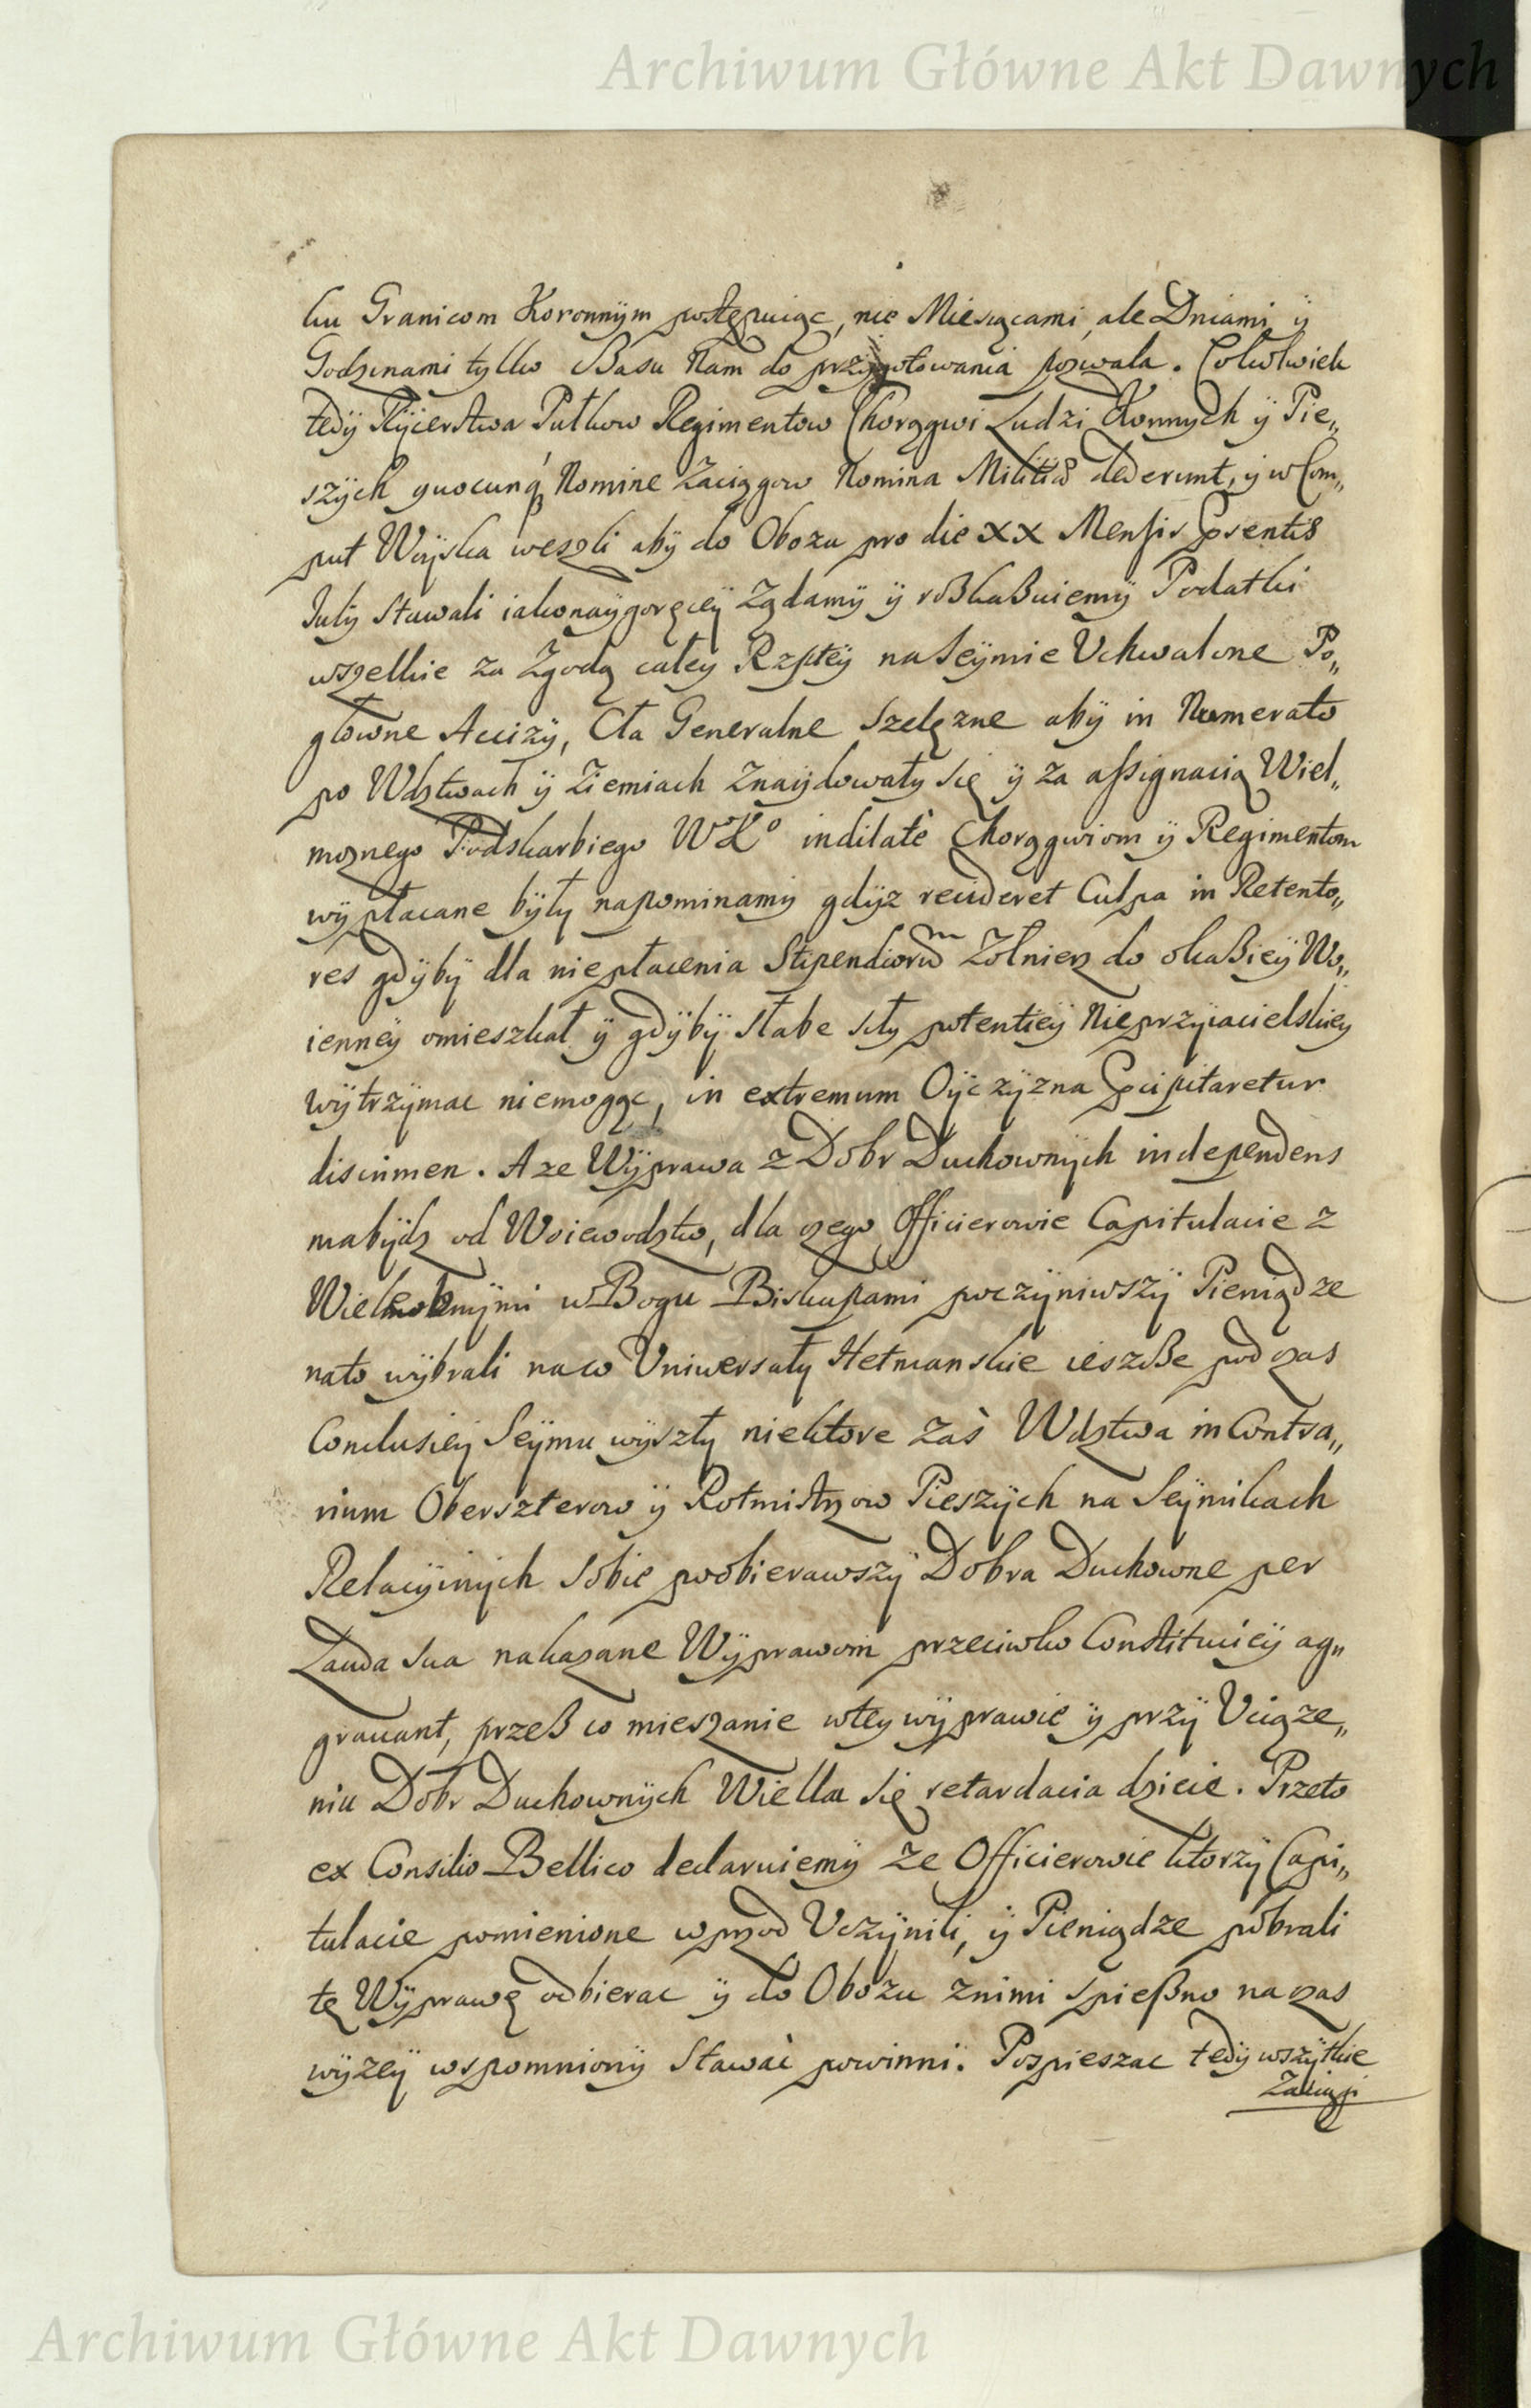 Archiwum Główne Akt Dawnych
ku Granicom Koronnÿm postępuiąc, nie Miesiącami, ale Dniami ÿ
Godzinami tylko Czasu Nam do przÿgotowania pozwala. Cokolwiek
tedÿ Rÿcerstwa Pułkow Regimentow Chorągwi Ludzi Konnych ÿ Pie„
szÿch quocunq Nomine Zaciągow Nomina Militiæ dederunt, ÿ w Com„
put Woÿska weszli abÿ do Obozu pro die XX Mensis Pŕsentis
Julÿ stawali iakonaÿgoręceÿ Ządamÿ ÿ roskaßuiemÿ Podatki
wszelkie za Zgodą całeÿ Rzpłeÿ na Seÿmie Uchwalone Po„
główne Accizÿ, Cła Generalne Szelęzne abÿ in Numerato
po Wdztwach ÿ Ziemiach Znaÿdowałÿ się ÿ za assignacią Wiel„
moznego Podskarbiego WKo indilatè Chorągwiom ÿ Regimentom
wÿpłacane bÿłÿ napominamÿ gdÿz recideret Culpa in Retento„
res gdÿbÿ dla niepłacenia Stipendiorũ Zołnierz do okaßieÿ Wo„
ienneÿ omieszkał ÿ gdÿbÿ słabe siłÿ potentieÿ Nieprzÿiacielskieÿ
wÿtrzÿmac niemogąc, in extremum Oÿczÿzna Pŕcipitaretur
discrimen. A ze Wÿprawa z Dobr Duchownÿch independens
mabÿdz od Woiewodztw, dla czego Officierowie Capitulacie z
Wielmoznÿmi w Bogu Biskupami poczÿniwszÿ Pieniądze
nato wÿbrali naco Uniwersałÿ Hetmanskie ieszcße pod czas
Conclusieÿ Seÿmu wÿszłÿ niektore zaś Wdztwa in Contra„
rium Oberszterow ÿ Rotmistrzow Pieszÿch na Seÿmikach
Relacÿinÿch sobie poobierawszÿ Dobra Duchowne per
Lauda sua nakazane Wÿprawom przeciwko Constitucieÿ ag„
grauant, przeß co mieszanie wteÿ wÿprawie ÿ przÿ Uciąze„
niu Dobr Duchownÿch Wielka się retardacia dzieie. Przeto
ex Consilio Bellico declaruiemÿ ze Officierowie ktorzÿ Capi„
tulacie pomienione wprzod Uczÿnili, ÿ Pieniądze pobrali
tę Wÿprawę odbierac ÿ do Obozu znimi spießno na czas
wÿzeÿ wspomnionÿ stawać powinni. Pospieszac tedÿ wszÿtkie
Zaciągi
Archiwum Główne Akt Dawnych